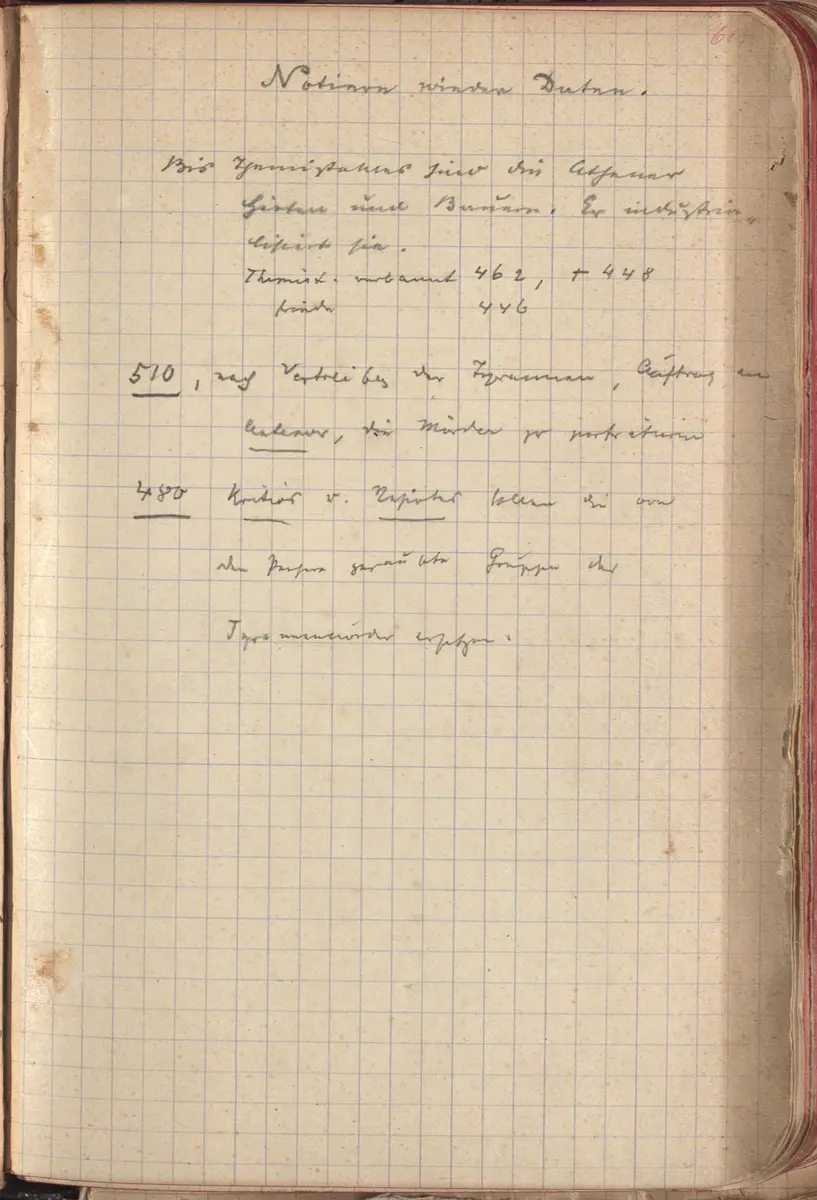 Notiere wieder Daten.
Bis Themistokles sind die Athener
Hirten und Bauern. Er industria-
lisirt sie.
Themist. verbannt 462, + 448
Friede 446
510, nach Vertreibg der Tyrannen, Auftrag an
Antenor, die Mörder zu porträtiren
480 Kritios u. Nesiotes sollen die von
den Persern geraubte Gruppe der
Tyrannenmörder ersetzen.